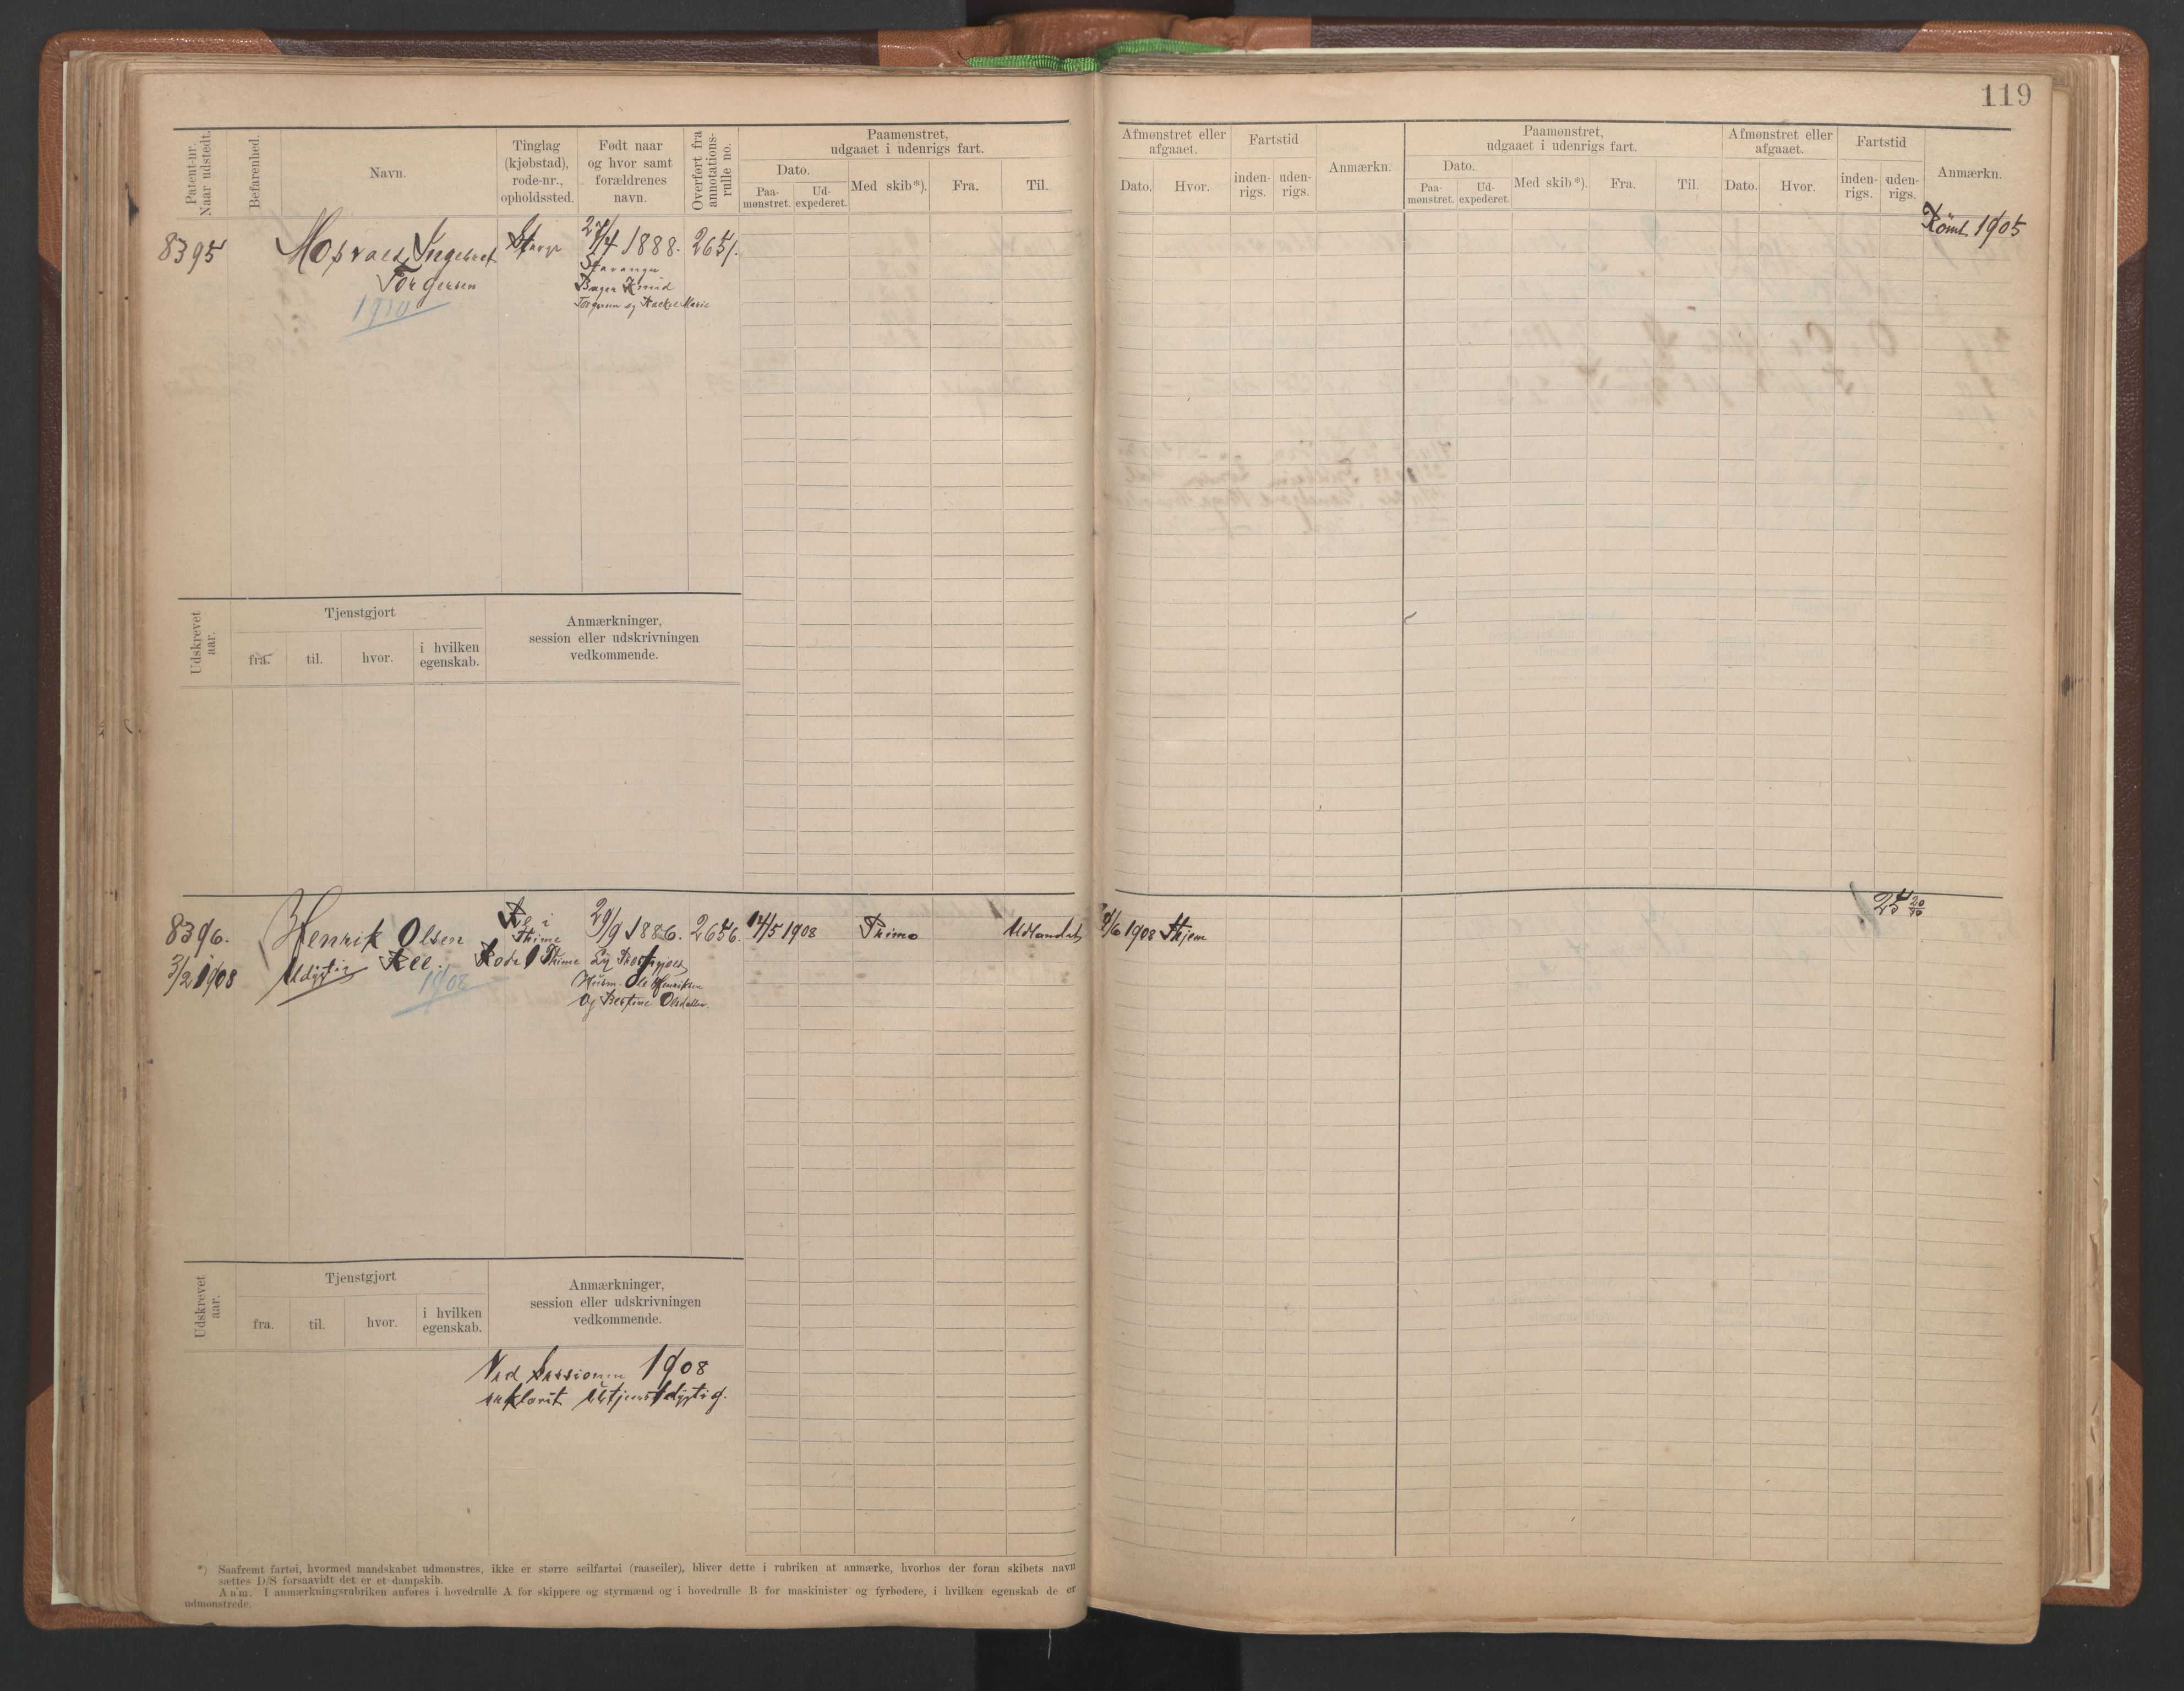 119
Patent-nr. Naar udstedt.
Befarenhed.
Navn.
Tinglag (kjøbstad), rode-nr., opholdssted.
Født naar og hvor samt forældrenes navn.
Overført fra annotations-rulle no.
Paamønstret, udgaaet i udenrigs fart.
Dato.
Paa-mønstret.
Ud-expederet.
Med skib*).
Fra.
Til.
Afmønstret eller afgaaet.
Dato.
Hvor.
Fartstid
inden-rigs.
uden-rigs.
Anmærkn.
Paamønstret, udgaaet i udenrigs fart.
Dato.
Paa-mønstret.
Ud-expederet.
Med skib*).
Fra.
Til.
Afmønstret eller afgaaet.
Dato.
Hvor.
Fartstid
inden-rigs.
uden-rigs.
Anmærkn.
8395
Ingebret
Torgersen
1910
1888.
Stavanger
Knud
Torgersen og Rackel Marie
2651.
Rømt 1905
Udskrevet aar.
Tjenstgjort
fra.
til.
hvor.
i hvilken egenskab.
Anmærkninger, session eller udskrivningen vedkommende.
8396.
3/2 1908
Henrik Olsen
Udygtig
1908
i
Thime
Rode 1 Thime
29/9 1886.
Husm. Ole Henriksen
og Olsdatter.
2656.
14/5 1908
Primo
Udlandet
/6 1908 Hjem
Udskrevet aar.
Tjenstgjort
fra.
til.
hvor.
i hvilken egenskab.
Anmærkninger, session eller udskrivningen vedkommende.
Ved Sessionen 1908
erklæret utjenstdygtig.
*) Saafremt fartøi, hvormed mandskabet udmønstres, ikke er større seilfartøi (raaseiler), bliver dette i rubriken at anmærke, hvorhos der foran skibets navn
sættes D/S forsaavidt det er et dampskib.
Anm. I anmærkningsrubriken anføres i hovedrulle A for skippere og styrmænd og i hovedrulle B for maskinister og fyrbødere, i hvilken egenskab de er
udmønstrede.